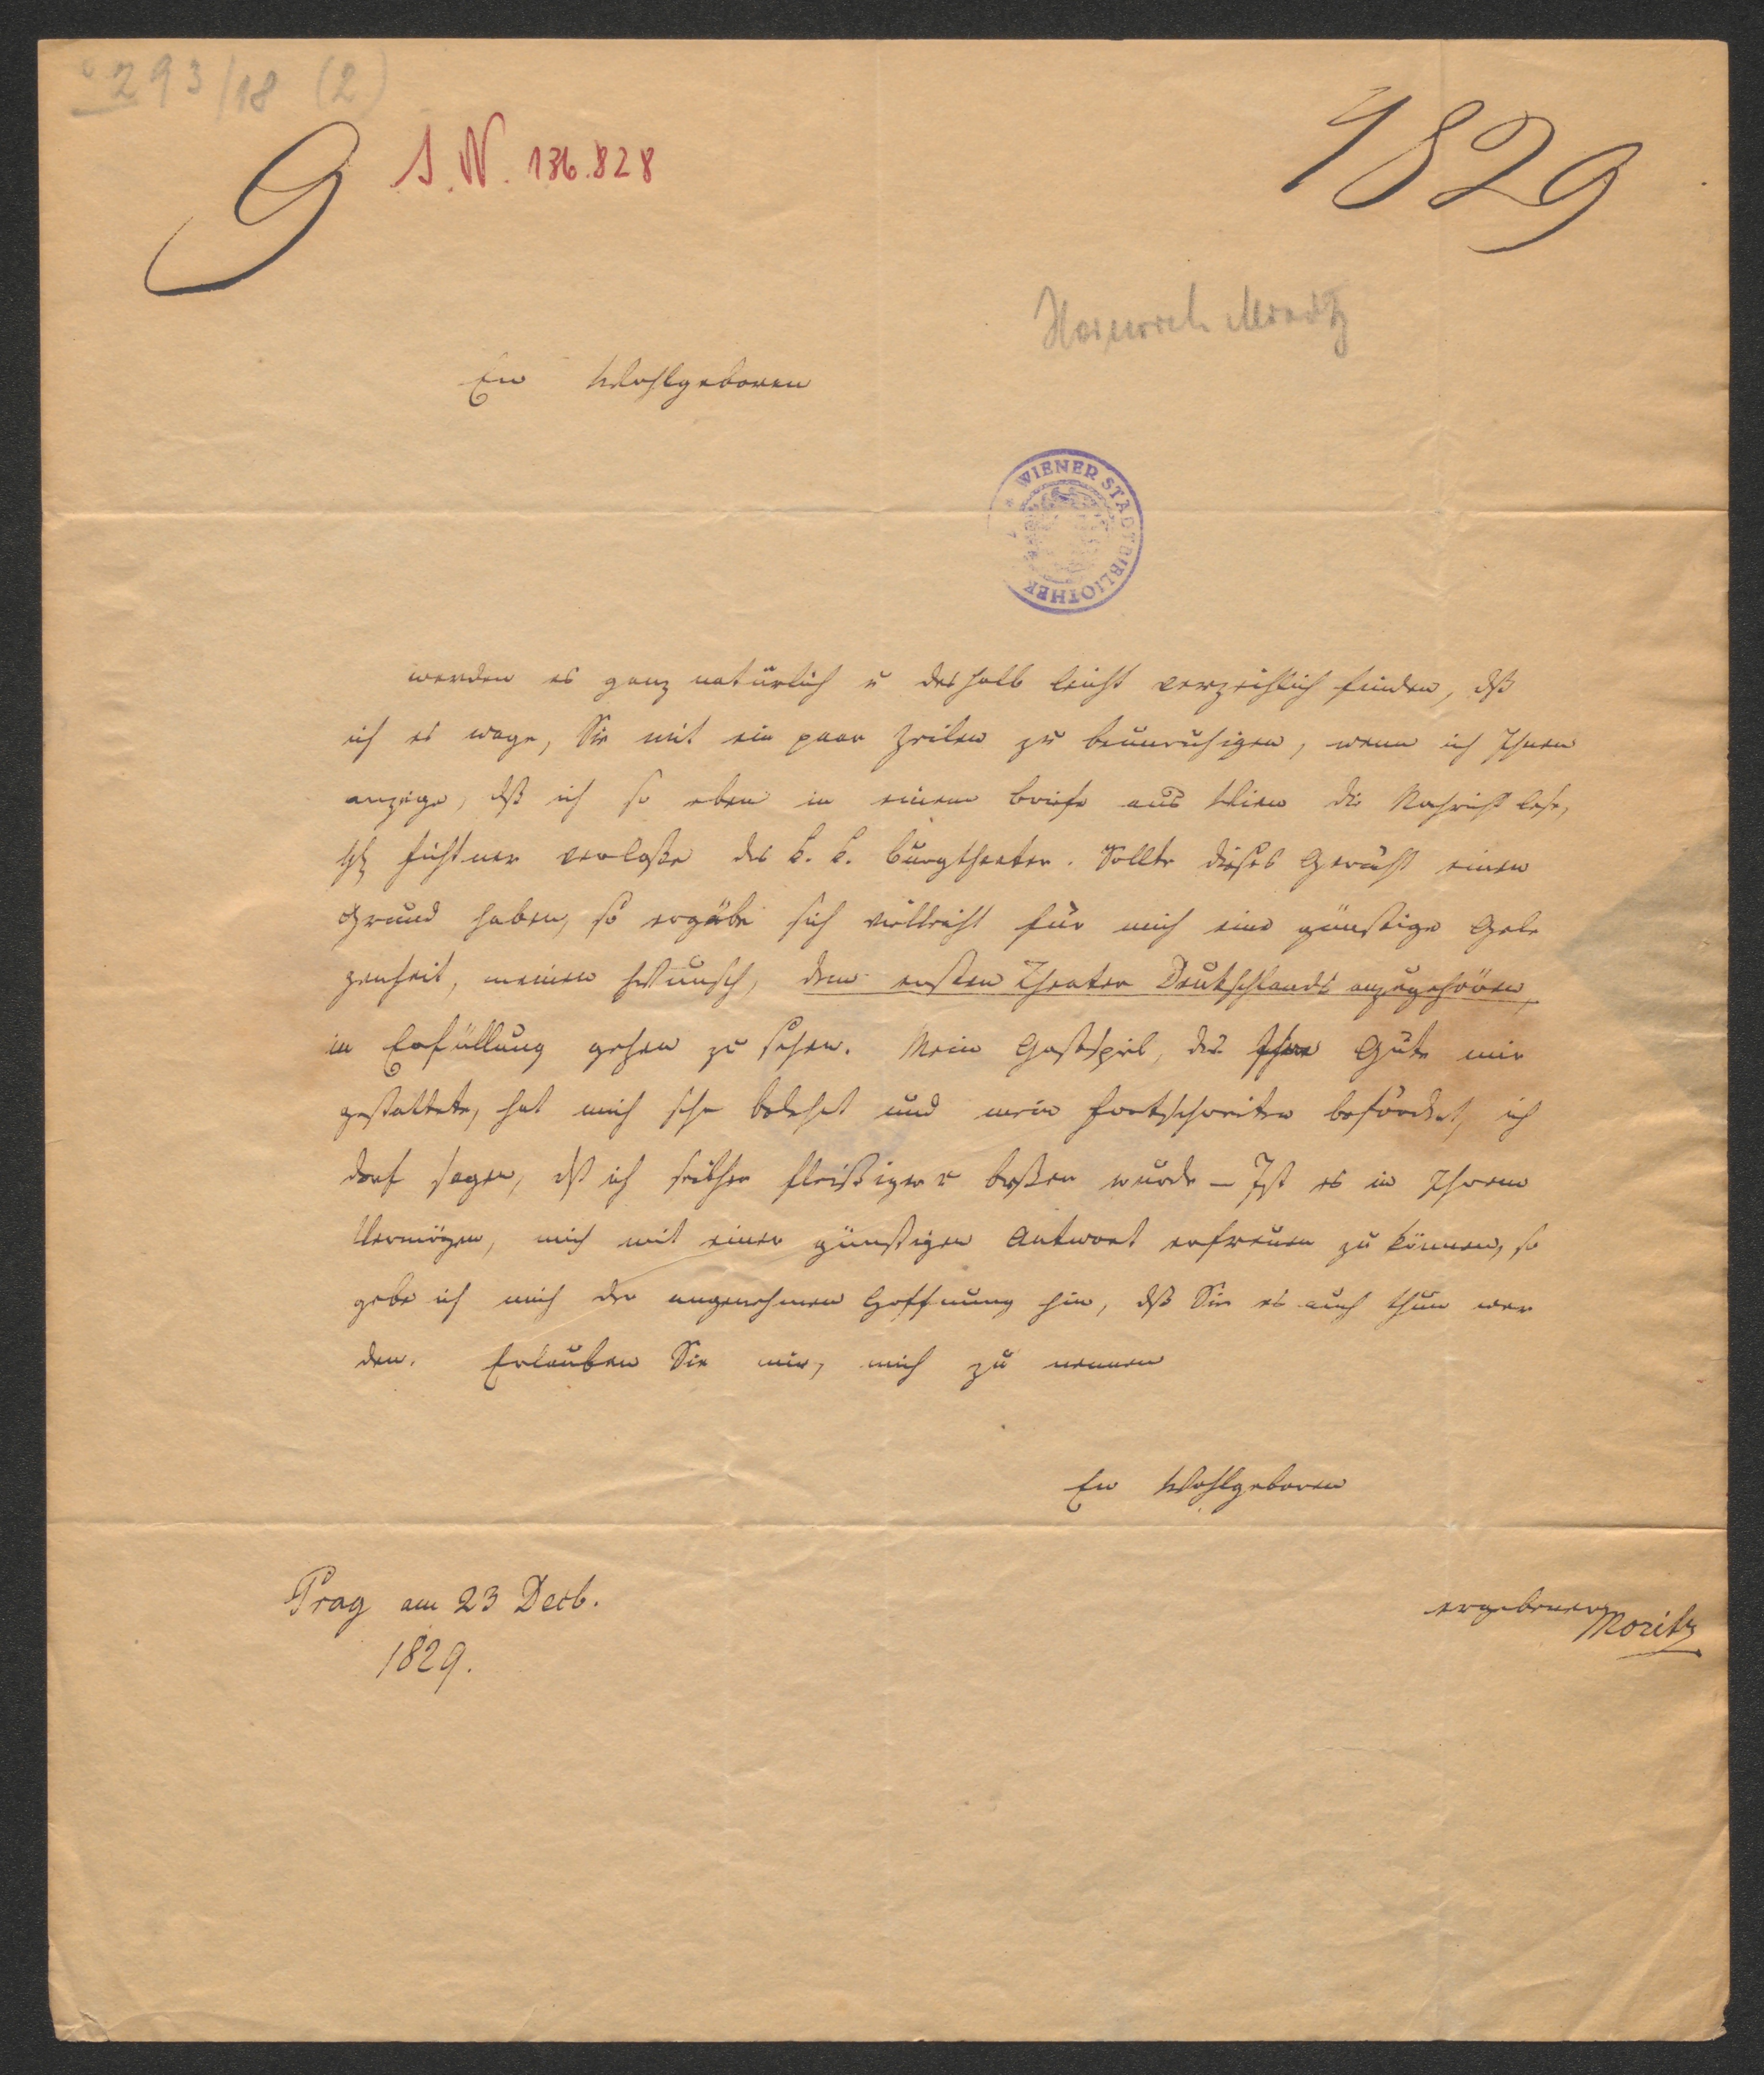 293/18 (2)
9 I. N. 136.828
1829
Heinrich Moritz
Ew Wohlgeboren
WIENER STADTBIBLIOTHEK
werden es ganz natürlich u deshalb leicht verzeihlich finden, dß
ich es wage, Sie mit ein paar Zeilen zu beunruhigen, wenn ich Ihnen
anzeige, dß ich so eben in einem Briefe aus Wien die Nachricht lese,
H Fichtner verlaße das k. k. Burgtheater. Sollte dieses Gerücht einen
Grund haben, so ergäbe sich vielleicht für mich eine günstige Gele
genheit, meinen Wunsch, dem ersten Theater Deutschlands anzugehören,
in Erfüllung gehen zu sehen. Mein Gastspiel, das Ihre Güte mir
gestattete, hat mich sehr belehrt und mein Fortschreiten befördert, ich
darf sagen, dß ich seither fleißiger u beßer wurde – Ist es in Ihrem
Vermögen, mich mit einer günstigen Antwort erfreuen zu können, so
gebe ich mich der angenehmen Hoffnung hin, dß Sie es auch thun wer
den. Erlauben Sie mir, mich zu nennen
Ew Wohlgeboren
Prag am 23 Decb.
1829.
ergebener
Moritz